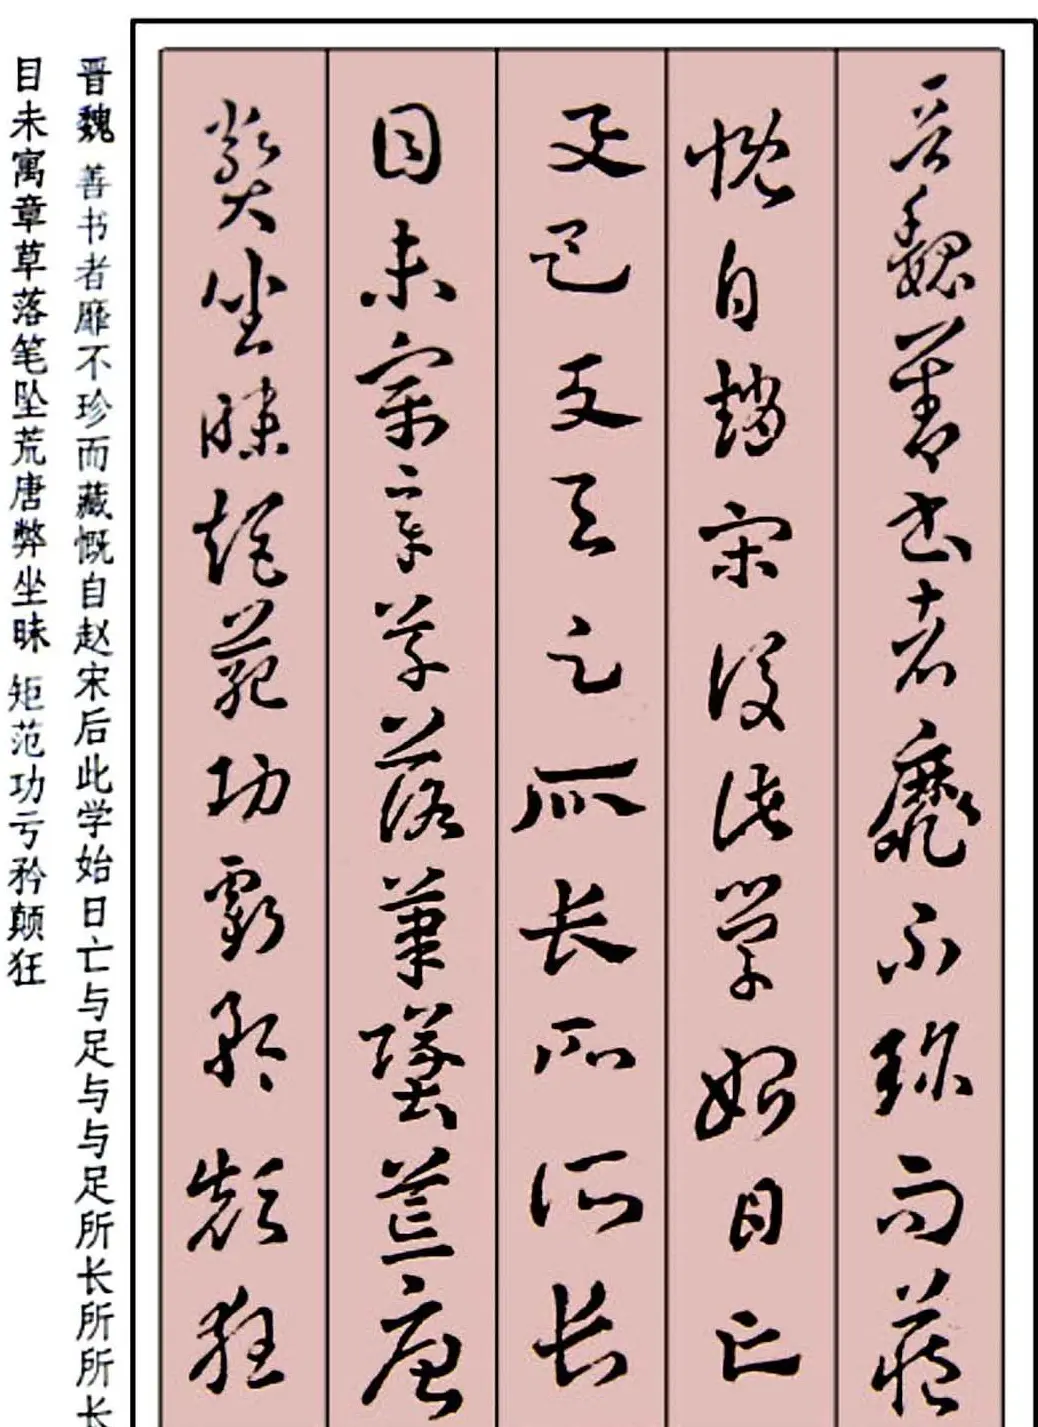 晉魏善書者靡不珍而藏
慨自趙宋後此學始日亡
与足与与足所长所所长
目未寓章草落筆墜荒唐
弊坐昧矩范功虧矜顛狂
晋魏 善书者靡不珍而藏慨自赵宋后此学始日亡与足与与足所长所所长
目未寓章草落笔坠荒唐弊坐昧 矩范功亏矜颠狂